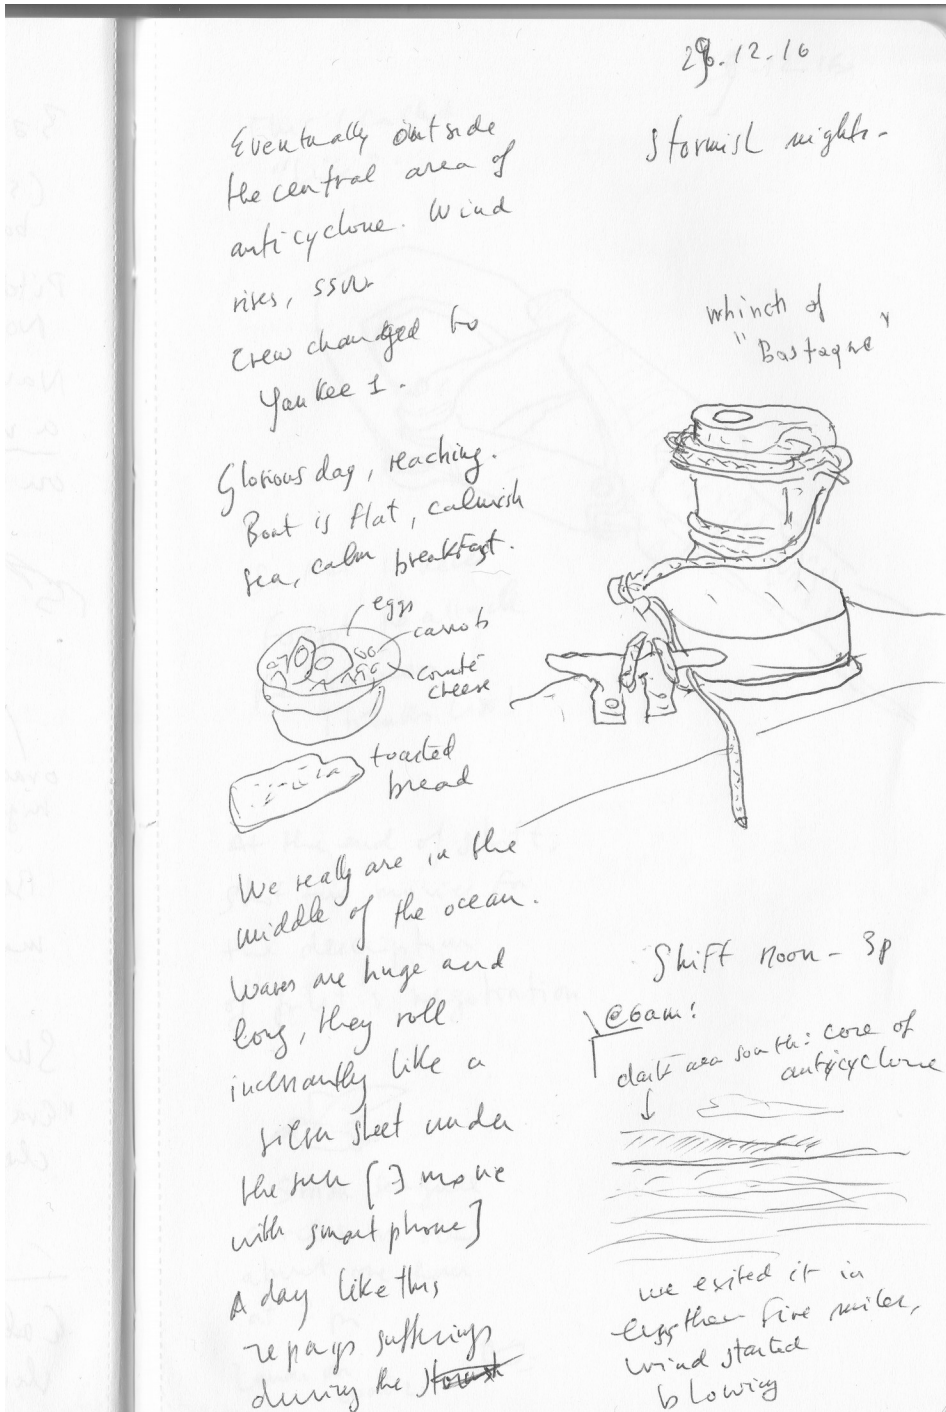 29.12.16
Eventually outside
the central area of
anticyclone. Wind
rises, SSW.
Crew changed to
Yankee 1.
Glorious day, reaching.
Boat is flat, calmish
sea, calm breakfast.
eggs
carrots
comté
cheese
toasted
bread
We really are in the
middle of the ocean.
Waves are huge and
long, they roll
incessantly like a
sheet under
the sun [∃ movie
with smartphone]
A day like this
repays sufferings
during the
stormish nights.
whinch of
"Bastaque"
Shift noon - 3p
@6am:
dark area south: core of
anticyclone
we exited it in
less then five miles,
wind started
blowing